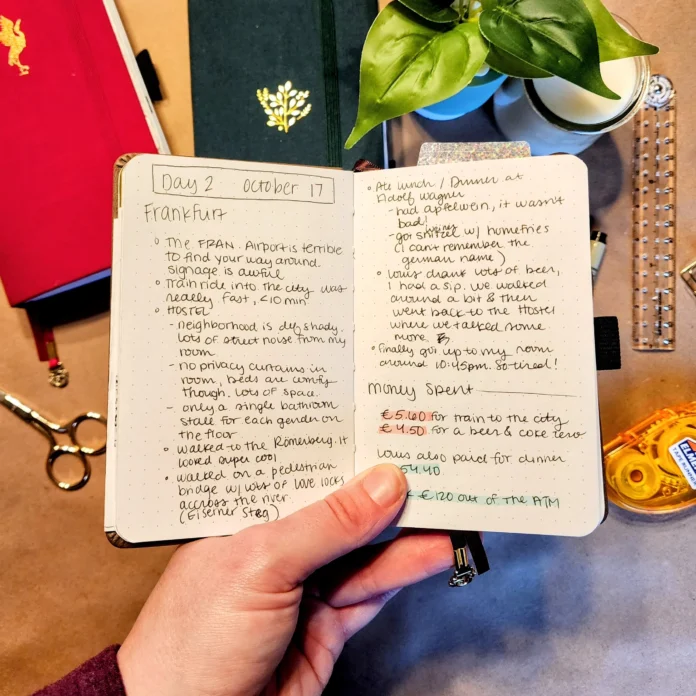 Day 2 October 17
Frankfurt
The FRAN. Airport is terrible
to find your way around.
signage is awful
Train ride into the city was
really fast, <10 min
Hostel
- neighborhood is def shady.
lots of street noise from my
room.
- no privacy curtains in
room, beds are comfy
though. lots of space.
- only a single bathroom
stall for each gender on
the floor
walked to the Römerberg. It
looked super cool
walked on a pedestrian
bridge w/ lots of love locks
across the river.
(Eiserner Steg)
Ate lunch / Dinner at
Adolf Wagner
- had apfelwein, it wasn't
bad!
- got snitzel w/ homefries
(I can't remember the
german name)
Louis drank lots of beer,
I had a sip. we walked
around a bit & then
went back to the Hostel
where we talked some
more.
Finally got up to my room
around 10:45pm. So tired!
Money Spent
€5.60 for train to the city
€4.50 for a beer & coke zero
Louis also paid for dinner
54.40
€120 out of the ATM